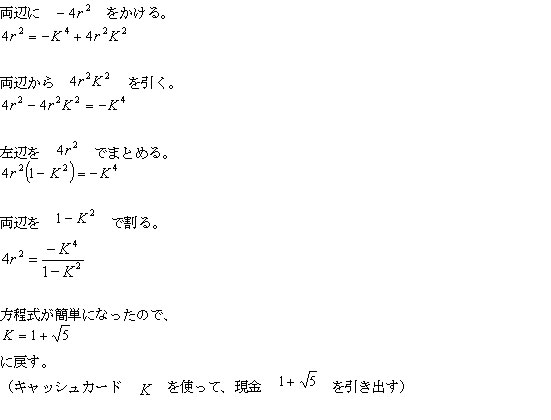 両辺に －4r² をかける。
4r² = －K⁴ + 4r²K²
両辺から 4r²K² を引く。
4r² － 4r²K² = －K⁴
左辺を 4r² でまとめる。
4r²(1－K²) = －K⁴
両辺を 1－K² で割る。
4r² = －K⁴ / 1－K²
方程式が簡単になったので、
K = 1+√5
に戻す。
（キャッシュカード K を使って、現金 1+√5 を引き出す）